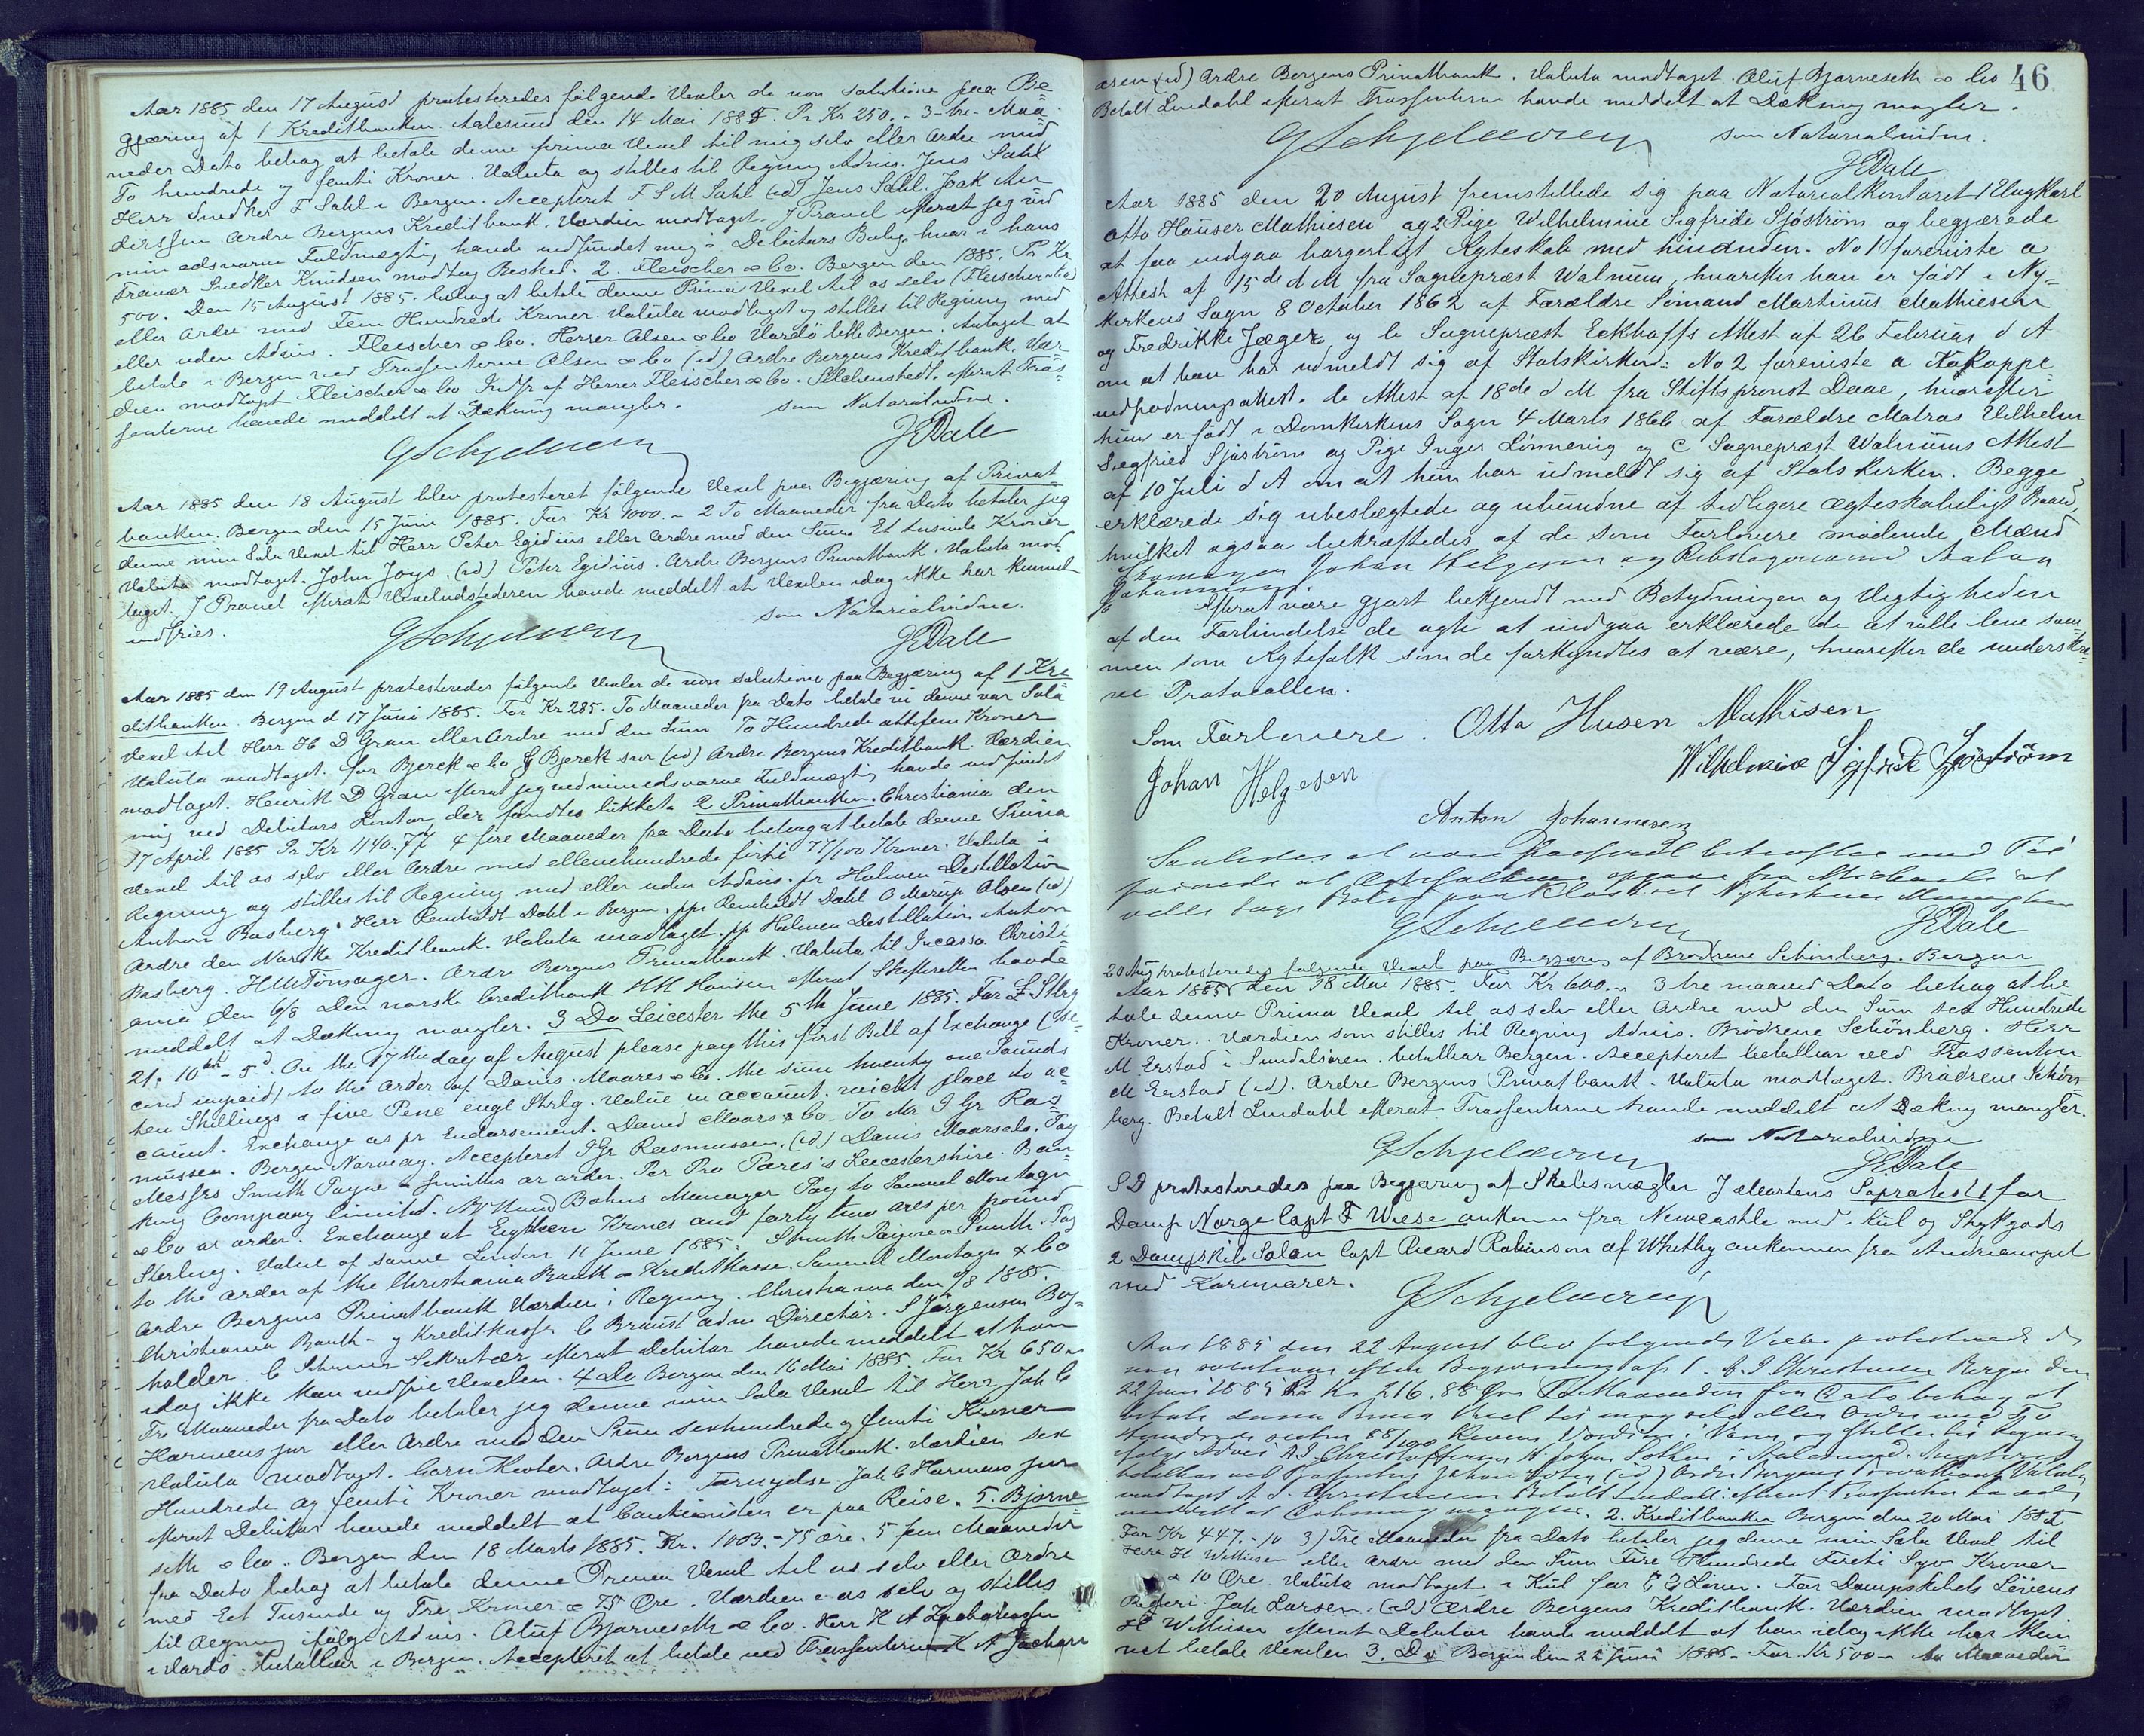 Aar 1885 den 17 August protesteredes følgende Vexler de non solutione paa Be=
gjæring af 1 Kreditbanken. Aalesund den 14 Mai 1885. Pr Kr 250.- 3-tre-Maa=
neder Dato behag at betale denne prima Vexel til mig selv eller Ordre med
To hundrede og femti Kroner. Valuta og stilles til Regning Advis. Jens Sahl
Herr Snedker F Sahl i Bergen. Accepteret F S M Sahl (ed) Jens Sahl. Joak An
derssen Ordre Bergens Kreditbank. Værdien modtaget. J Pravel efterat jeg ved
min edsvorne Fuldmægtig havde indfundet mig i Debitors Bolig, hvor i hans
Fravær Snedker Knudsen modtog Besked. 2. Fleischer & Co. Bergen den 1885. Pr Kr
500. Den 15 August 1885. behag at betale denne Prima Vexel til os selv (Fleischer & Co)
eller Ordre med Fem Hundrede Kroner. Valuta modtaget og stilles til Regning med
eller uden Advis. Fleischer & Co. Herrer Olsen & Co Vardø bttb Bergen. Antaget at
betale i Bergen ved Trassenterne Olsen & Co (ed) Ordre Bergens Kreditbank. Vær
dien modtaget Fleischer & Co Indfr af Herrer Fleischer & Co. efterat Tras=
senterne havde meddelt at Dækning mangler. som Notarialvidne.
GSchjelderup JEDale
Aar 1885 den 18 August blev protesteret følgende Vexel paa Begjæring af Privat
banken. Bergen den 15 Juni 1885. For Kr 1000.- 2 To Maaneder fra Dato betaler jeg
denne min Sola Vexel til Herr Peter Egidius eller Ordre med den Sum Et tusinde Kroner
Valuta modtaget. John Joys. (ed) Peter Egidius. Ordre Bergens Privatbank. Valuta mod
taget. J Pravel efterat Vexeludstederen havde meddelt at Vexlen idag ikke har kunnet
indfries. som Notarialvidne.
GSchjelderup JEDale
Aar 1885 den 19 August protesteredes følgende Vexler de non solutione paa Begjæring af 1 Kre
ditbanken. Bergen d 17 Juni 1885. For Kr 285. To Maaneder fra Dato betale vi denne vor Sola
Vexel til Herr H D Gran eller Ordre med den Sum To Hundrede ottifem Kroner
Valuta modtaget. for Bjerck & Co G Bjerck snr (ed) Ordre Bergens Kreditbank. Værdien
modtaget. Henrik D Gran efterat jeg ved min edsvorne Fuldmægtig havde indfundet
mig ved Debitors Kontor, der fandtes lukket. 2 Privatbanken. Christiania den
17 April 1885 Pr Kr 1140.77 4 fire Maaneder fra Dato behag at betale denne Prima
Vexel til os selv eller Ordre med ellevehundrede firti 77/100 Kroner. Valuta i
Regning og stilles til Regning med eller uden Advis. pr Holmen Destillation
Anton Basberg. Herr Reinholdt Dahl i Bergen. ppa Reinholdt Dahl O Mørup Olsen (ed)
Ordre den Norske Kreditbank. Valuta modtaget. pp Holmen Destillation Anton
Basberg. HMTønsager. Ordre Bergens Privatbank. Valuta til Incasso Christi=
ania den 6/8 Den norske Creditbank HH efterat Skifteretten havde
meddelt at Dækning mangler. 3 Do Leicester the 5th June 1885. For £ Sterlg
21. 10sh - 5d. On the 17 the day of August please pay this first Bill of Exchange (se=
cond unpaid) to the order of Davis. Moares & Co. the sum twenty one Pounds
ten Shillings & five Pene engl Strlg. Value in account. which place to ac=
count. Exchange as pr Endorsement. David Moors & Co. To Mr J Gr Ras=
mussen. Bergen Norway. Accepteret J Gr Rasmussen. (ed) Davis Moars & Co. Pay
Messrs Smith Payne & Smiths or order. Per Pro Pares's Leicestershire Ban=
king Company limited. Manager Pay to Samuel Montagu
& Co or order. Exchange at Eighteen Krones and forty two ores per pound
Sterling. Value of same London 11 June 1885. Smith Paijne & Smith. Pay
to the order of the Christiania Bank & Kreditkasse. Samuel Montagu & Co
Ordre Bergens Privatbank Værdien i Regning. Christiania den 1885.
Christiania Bank- og Kreditkasse C Braust adm Director. S Jørgensen Bog=
holder. C Sekretær efterat Debitor havde meddelt at han
idag ikke kan indfrie Vexelen. 4 Do Bergen den 16 Mai 1885. For Kr 650.-
Tre Maaneder fra Dato betaler jeg denne min Sola Vexel til Herr Joh C
Harmens jnr eller Ordre med den Sum sexhundrede og femti Kroner
Valuta modtaget. Ordre Bergens Privatbank. Værdien sex
Hundrede og femti Kroner modtaget: Fornyelse. Joh C Harmens jnr
efterat Debitor havde meddelt at Cautionisten er paa Reise. 5. Bjarne
seth & Co. Bergen den 18 Marts 1885. Kr. 1003.-75 øre. 5 fem Maaneder
fra Dato behag at betale denne Prima Vexel til os selv eller Ordre
med Eet Tusinde og Tre Kroner & 75 Øre. Værdien i os selv og stilles
til Regning ifølge Advis. Oluf Bjarneseth & Co. Herr H A Zachariassen
i Vardø. betalbar i Bergen. Accepteret at betale ved Trassenterne H A Zachari
assen (ed) Ordre Bergens Privatbank. Valuta modtaget. Oluf Bjarneseth & Co 46
Betalt Lindahl efterat Trassenterne havde meddelt at Dækning mangler.
GSchjelderup som Notarialvidne.
JEDale
Aar 1885 den 20 August fremstillede sig paa Notarialkontoret 1 Ungkarl
Otto Hauser Mathiesen og 2 Pige Wilhelmine Sigfride Sjöström og begjærede
at faa indgaa borgerligt Ægteskab med hinanden. No 1 foreviste a
Attest af 15de d M fra Sognepræst Walnum, hvorefter han er født i Ny=
kirkens Sogn 8 October 1862 af Forældre Sømand Martinus Mathiesen
og Fredrikke Jæger, og b Sognepræst Eckhoffs Attest af 26 Februar d A
om at han har udmeldt sig af Statskirken: No 2 foreviste a Kokoppe
indpodningsattest. b Attest af 18de d M fra Stiftsprovst Daae, hvorefter
hun er født i Domkirkens Sogn 4 Marts 1866 af Forældre Matros Vilhelm
Siegfried Sjöström og Pige Inger Lønnevig og C Sognepræst Walnums Attest
af 10 Juli d A om at hun har udmeldt sig af Statskirken. Begge
erklærede sig ubeslægtede og ubundne af tidligere ægteskabeligt Baand,
hvilket ogsaa bekræftedes af de som Forlovere mødende Mænd
Skomager Johan Helgesen og
Johannesen
Efterat være gjort bekjendt med Betydningen og Vigtigheden
af den Forbindelse de agte at indgaa erklærede de at ville leve sam=
men som Ægtefolk som de forkyndtes at være, hvorefter de underskre=
ve Protocollen.
Som Forlovere. Otto Husen Mathisen
Johan Helgesen Wilhelmine Sigfride Sjöström
Anton Johannesen
Saaledes at være bekræftes med Til
føiende at Ægtefolkene
GSchjelderup JEDale
20 Aug protesteredes følgende Vexel paa Begjæring af Brødrene Schönberg. Bergen
Aar 1885 den 18 Mai 1885. For Kr 600.- 3 tre maaned Dato behag at be
tale denne Prima Vexel til os selv eller Ordre med den Sum sex Hundrede
Kroner. Værdien som stilles til Regning Advis. Brödrene Schönberg. Herr
M Erstad i Sundalsøren. betalbar Bergen. Accepteret betalbar ved Trassenten
M Erstad (ed). Ordre Bergens Privatbank. Valuta modtaget. Brödrene Schön
berg. Betalt Lindahl efterat Trassenterne havde meddelt at Dækning mangler.
GSchjelderup som Notarialvidne
JEDale
S D protesteredes paa Begjæring af Skibsmægler J Martens Søprotest 1 for
Damp Norge Capt F Wiese ankommen fra Newcastle med Kul og Stykgods
2 Dampskib Solon Capt Ricard Robinson af Whitby ankommen fra
med Kornvarer. GSchjelderup
Aar 1885 den 22 August blev følgende Vexler protesterede de
non solutione efter Begjæring af 1. A. J Christensen Bergen den
22 Juni 1885 Kr 216.88 Øre To Maaneder fra Dato behag at
betale denne Prima Vexel til mig selv eller Ordre med To
Hundrede sexten 88/100 Kroner Værdien i og stilles til Regning
ifølge Advis
betalbar ved (ed) Ordre Bergens Privatbank Valuta
modtaget efterat Trassenten havde
meddelt at Dækning mangler. 2. Kreditbanken Bergen den 20 Mai 1885
For Kr 447.-10 3) Tre Maaneder fra Dato betaler jeg denne min Sola Vexel til
Herr H Withusen eller Ordre med den Sum Fire Hundrede Firti Syv Kroner
& 10 Øre. Valuta modtaget i Kul for Løven. For Dampskibet Løvens
Rederi. Joh Larsen. (ed) Ordre Bergens Kreditbank. Værdien modtaget.
H Withusen efterat Debitor havde meddelt at han idag ikke har kun
net betale Vexlen 3. Do Bergen den 22 Juni 1885. For Kr 500.- Maaneder